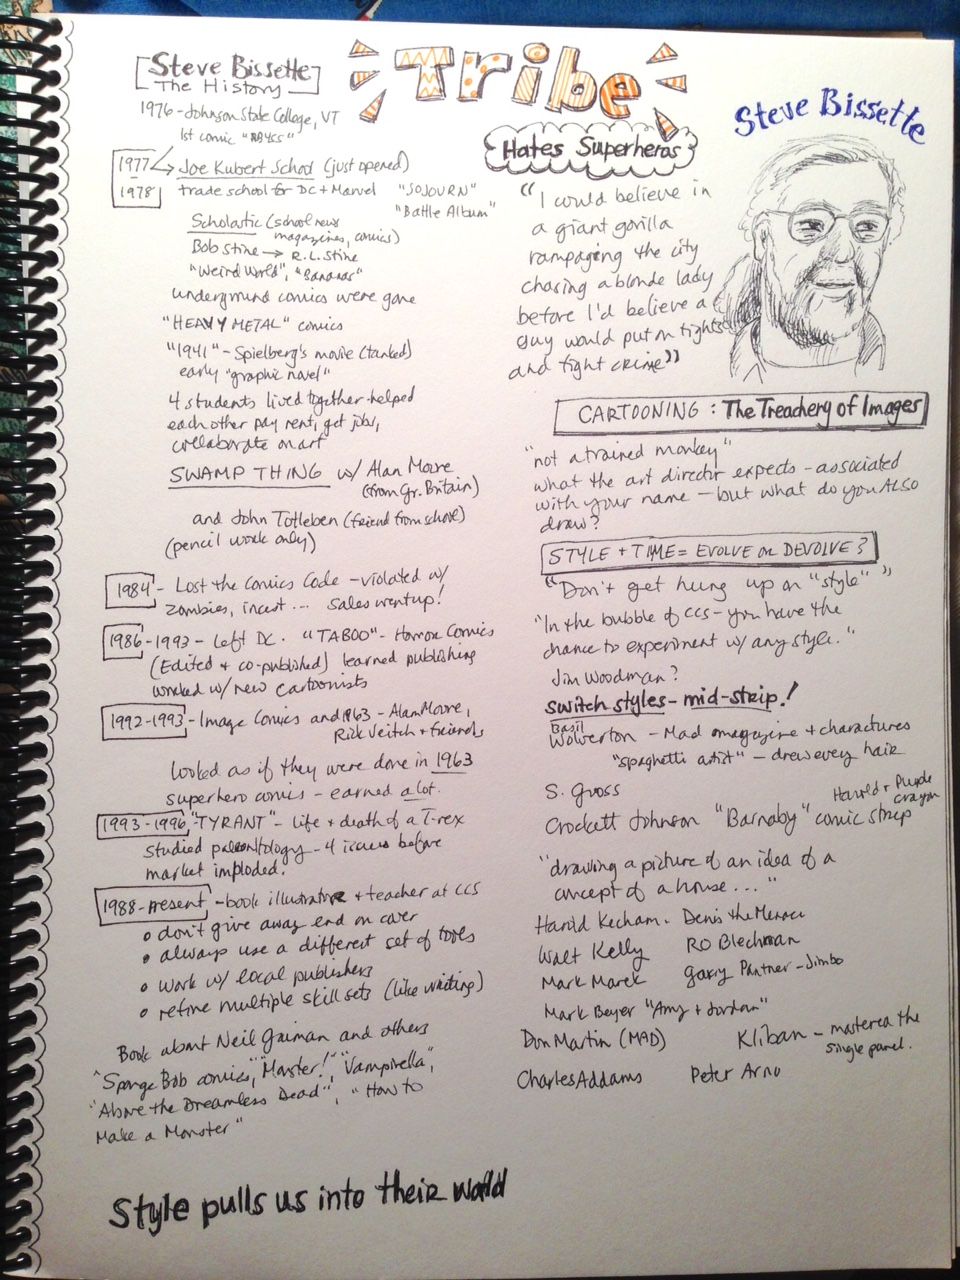 Steve Bissette
The History
1976 - Johnson State College, VT
1st comic "ABYSS"
1977 → Joe Kubert School (just opened)
1978 trade school for DC + Marvel "SOJOURN"
"Battle Album"
Scholastic (school news
magazines, comics)
Bob Stine → R.L. Stine
"Weird World", "Bananas"
underground comics were gone
"HEAVY METAL" comics
"1941" - Spielberg's movie (tanked)
early "graphic novel"
4 students lived together - helped
each other pay rent, get jobs,
collaborate on art
SWAMP THING w/ Alan Moore
(from Gr. Britain)
and John Totleben (friend from school)
(pencil work only)
1984 - Lost the Comics Code - violated w/
zombies, incest ... sales went up!
1986-1993 - Left DC. "TABOO" - Horror Comics
(Edited + co-published) learned publishing
worked w/ new cartoonists
1992-1993 - Image Comics and 1963 - Alan Moore,
Rick Veitch + friends
looked as if they were done in 1963
superhero comics - earned a lot.
1993-1996 "TYRANT" - life + death of a T-rex
studied paleontology - 4 issues before
market imploded.
1988-present - book illustrator + teacher at CCS
• don't give away end on cover
• always use a different set of tools
• work w/ local publishers
• refine multiple skill sets (like writing)
Book about Neil Gaiman and others
"Sponge Bob comics," "Monster!" "Vampirella",
"Above the Dreamless Dead", "How to
Make a Monster"
Style pulls us into their world
Tribe
Hates Superheros
Steve Bissette
"I would believe in
a giant gorilla
rampaging the city
chasing a blonde lady
before I'd believe a
guy would put on tights
and fight crime"
CARTOONING: The Treachery of Images
"not a trained monkey"
what the art director expects - associated
with your name - but what do you ALSO
draw?
STYLE + TIME = EVOLVE or DEVOLVE?
"Don't get hung up on "style""
"In the bubble of CCS - you have the
chance to experiment w/ any style."
Jim Woodman?
switch styles - mid-strip!
Basil
Wolverton - Mad magazine + charactures
"spaghetti artist" - drew every hair
S. Gross
Harold + Purple
crayon
Crockett Johnson "Barnaby" comic strip
"drawing a picture of an idea of a
concept of a house..."
Harold Kecham - Denis the Menace
Walt Kelly RO Blechman
Mark Marek Gary Pantner - Jimbo
Mark Beyer "Amy + Jordan"
Don Martin (MAD) Kliban - mastered the
single panel.
Charles Addams Peter Arno